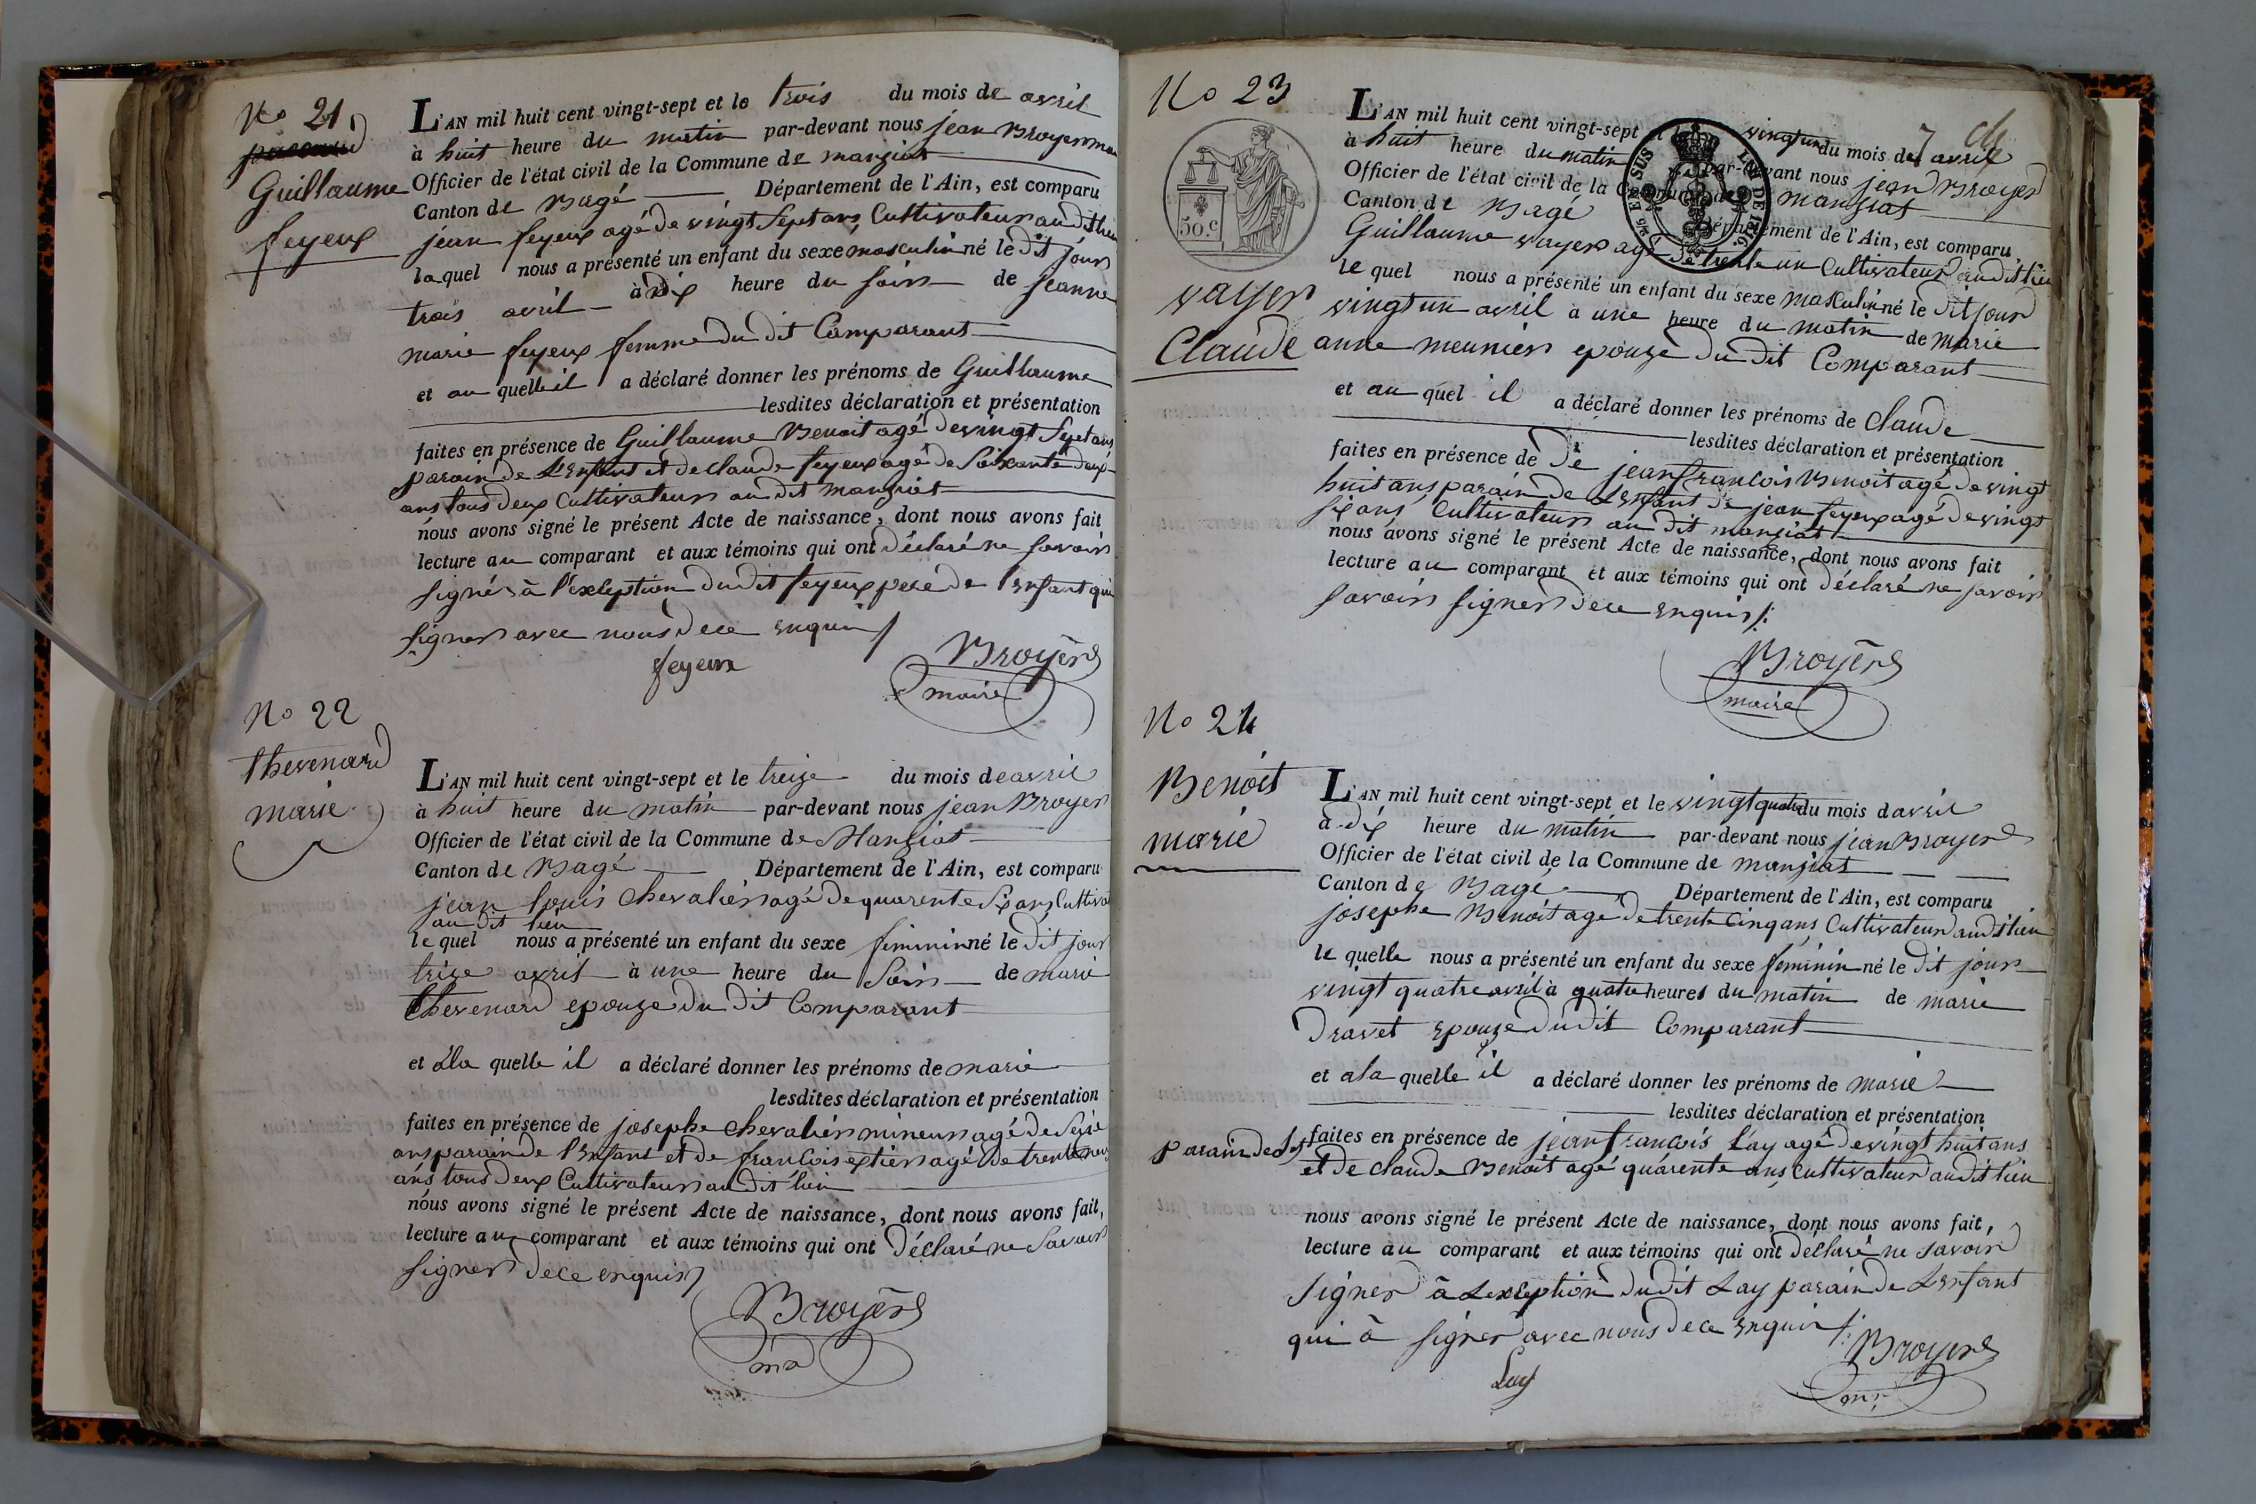 No 21
Guillaume
feyeux
L'AN mil huit cent vingt-sept et le trois du mois de avril
à huit heure du matin par-devant nous jean Broyer
Officier de l'état civil de la Commune de manziat
Canton de Bagé Département de l'Ain, est comparu
jean feyeux agé de vingt sept ans Cultivateur audit lieu
lequel nous a présenté un enfant du sexe masculin né le dit jour
trois avril à dix heure du soir de jeanne
marie feyeux femme du dit Comparant
et au quelle il a déclaré donner les prénoms de Guillaume
lesdites déclaration et présentation
faites en présence de Guillaume Benoit agé de vingt sept ans
parain de L'Enfant et de claude feyeux agé de soixante deux
ans tous deux Cultivateur au dit manziat
nous avons signé le présent Acte de naissance, dont nous avons fait
lecture au comparant et aux témoins qui ont déclaré ne savoir
signér à l'exception du dit feyeux pere de l'Enfant qui
signer avec nous de ce enquis
feyeux
Broyer
maire
No 22
thevenard
marie
L'AN mil huit cent vingt-sept et le treize du mois de avril
à huit heure du matin par-devant nous jean Broyer
Officier de l'état civil de la Commune de Manziat
Canton de Bagé Département de l'Ain, est comparu
jean louis Chevalier agé de quarente six ans Cultivat
au dit lieu
le quel nous a présenté un enfant du sexe feminin né le dit jour
treize avril à une heure du soir de marie
thevenard epouze du dit Comparant
et à la quelle il a déclaré donner les prénoms de marie
lesdites déclaration et présentation
faites en présence de josephe chevalier mineur agé de seize
ans parain de l'Enfant et de francois extier agé de trente neuf
ans tous deux Cultivateur au dit lieu
nous avons signé le présent Acte de naissance, dont nous avons fait,
lecture au comparant et aux témoins qui ont déclaré ne savoir
signer de ce enquis
Broyer
ma
No 23
50.c
vayer
Claude
L'AN mil huit cent vingt-sept vingt un du mois de avril
à huit heure du matin par-devant nous jean Broyer
Officier de l'état civil de la Commune de manziat
Canton de Bagé Département de l'Ain, est comparu
Guillaume vayer agé de trente un Cultivateur audit lieu
le quel nous a présenté un enfant du sexe masculin né le dit jour
vingt un avril à une heure du matin de marie
anne meunier epouze du dit Comparant
et au quel il a déclaré donner les prénoms de claude
lesdites déclaration et présentation
faites en présence de de jean francois Benoit agé de vingt
huit ans parain de L'Enfant de jean feyeux agé de vingt
six ans Cultivateur au dit manziat
nous avons signé le présent Acte de naissance, dont nous avons fait
lecture au comparant et aux témoins qui ont déclaré ne savoir
savoir signer de ce enquis
Broyer
maire
No 24
Benoit
marie
L'AN mil huit cent vingt-sept et le vingt quatre du mois d avril
à dix heure du matin par-devant nous jean Broyer
Officier de l'état civil de la Commune de manziat
Canton de Bagé Département de l'Ain, est comparu
josephe Benoit agé de trente cinq ans Cultivateur audit lieu
le quelle nous a présenté un enfant du sexe feminin né le dit jour
vingt quatre avril à quatre heures du matin de marie
Dravet epouze du dit Comparant
et a la quelle il a déclaré donner les prénoms de marie
lesdites déclaration et présentation
faites en présence de jean francois Lay agé de vingt huit ans
et de claude Benoit agé quarente ans Cultivateur au dit lieu
nous avons signé le présent Acte de naissance, dont nous avons fait,
lecture au comparant et aux témoins qui ont déclaré ne savoir
signer à L'exception du dit Lay parain de L'enfant
qui à signer avec nous de ce enquis
Lay
Broyer
mr